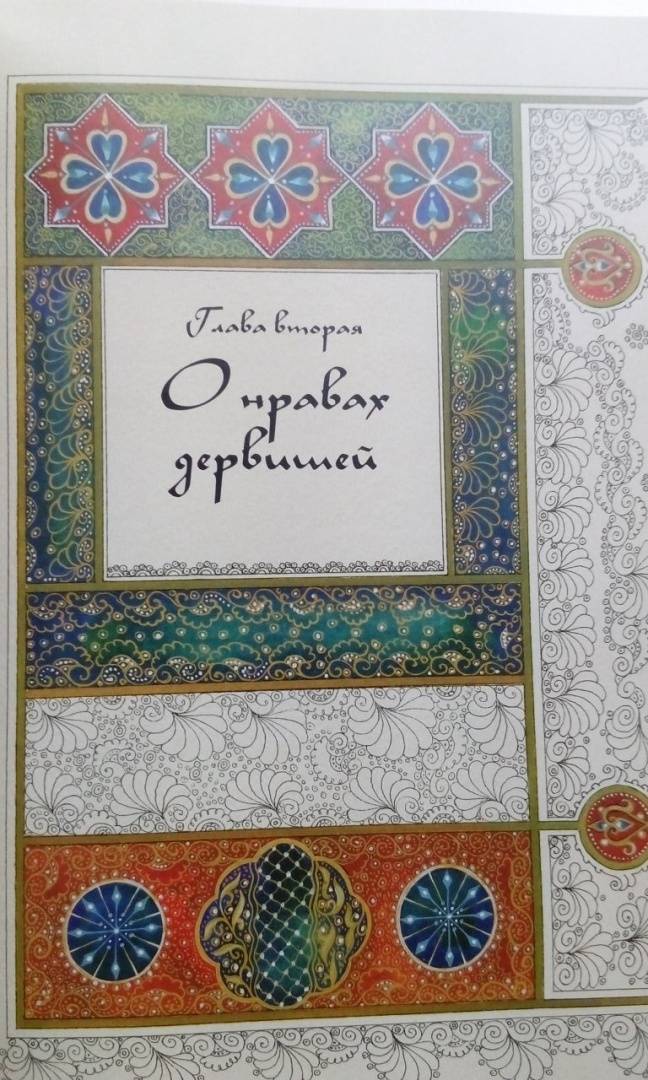 Глава вторая
О нравах
дервишей